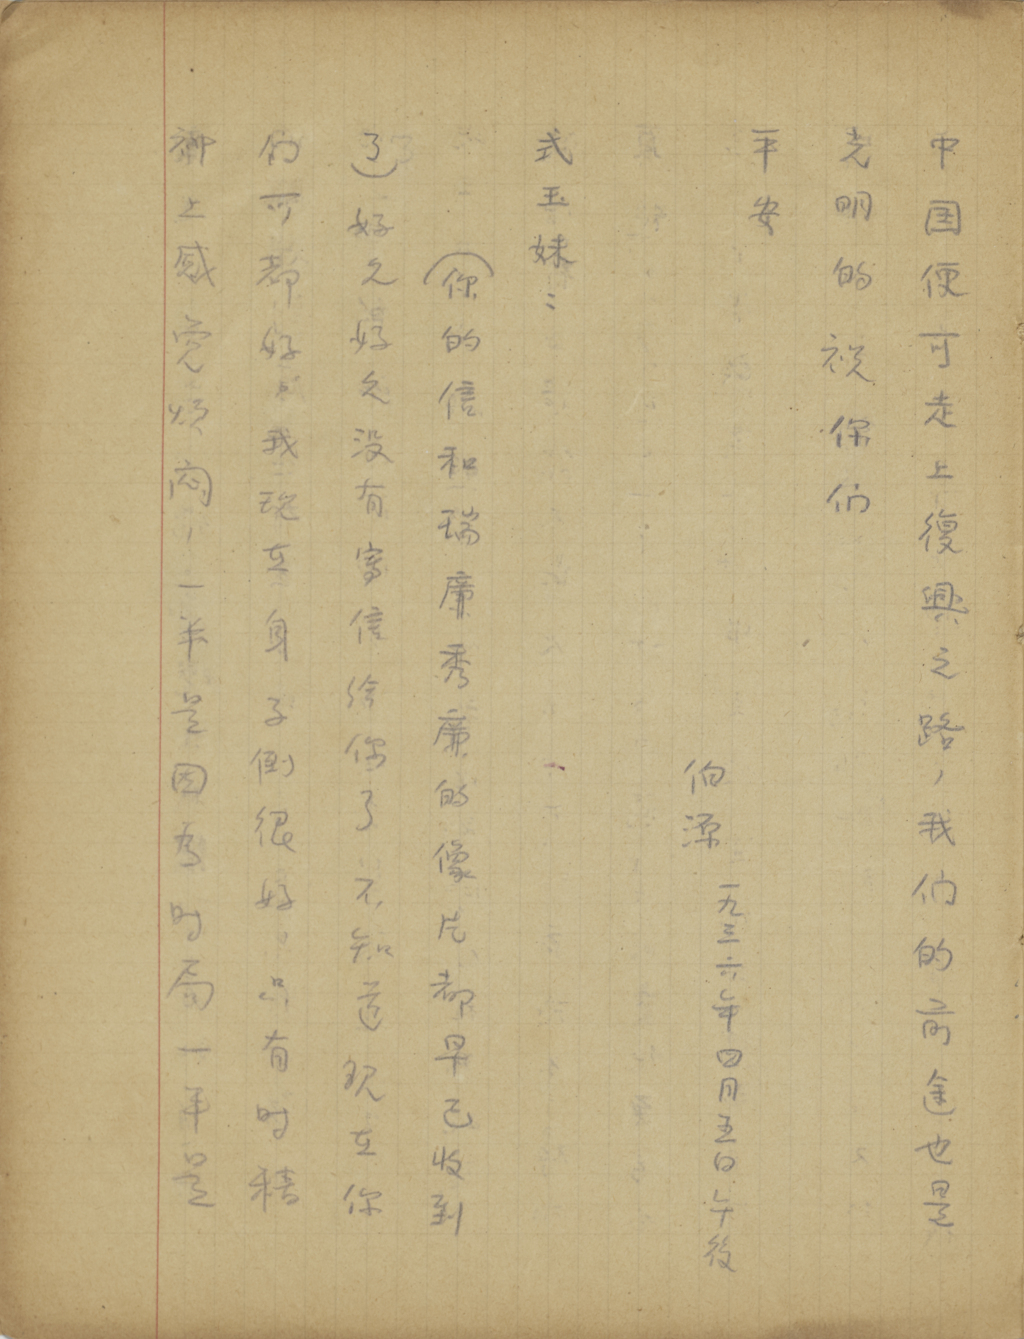 中国便可走上復興之路，我们的前途也是
光明的祝你们
平安
伯源
一九三六年四月五日午後
式玉妹：
（你的信和瑞廉秀廉的像片都早已收到
了）好久好久没有寫信给你了不知道现在你
们可都好？我现在身子倒很好，只有时精
神上感觉烦闷，一半是因为时局一半是